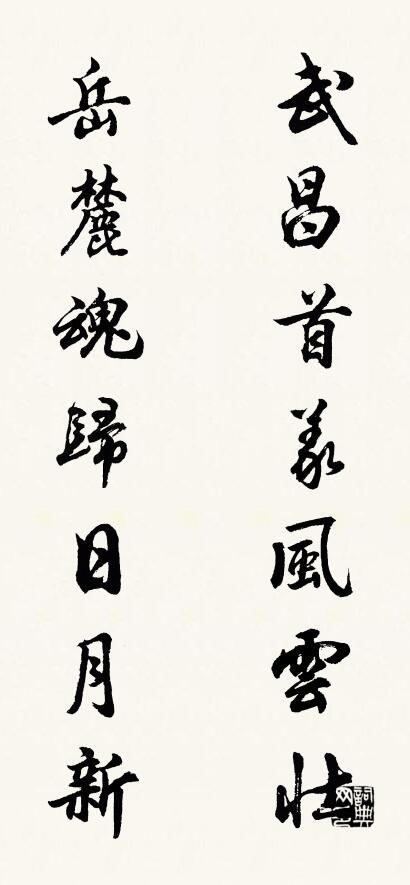 武昌首義風雲壯
岳麓魂歸日月新